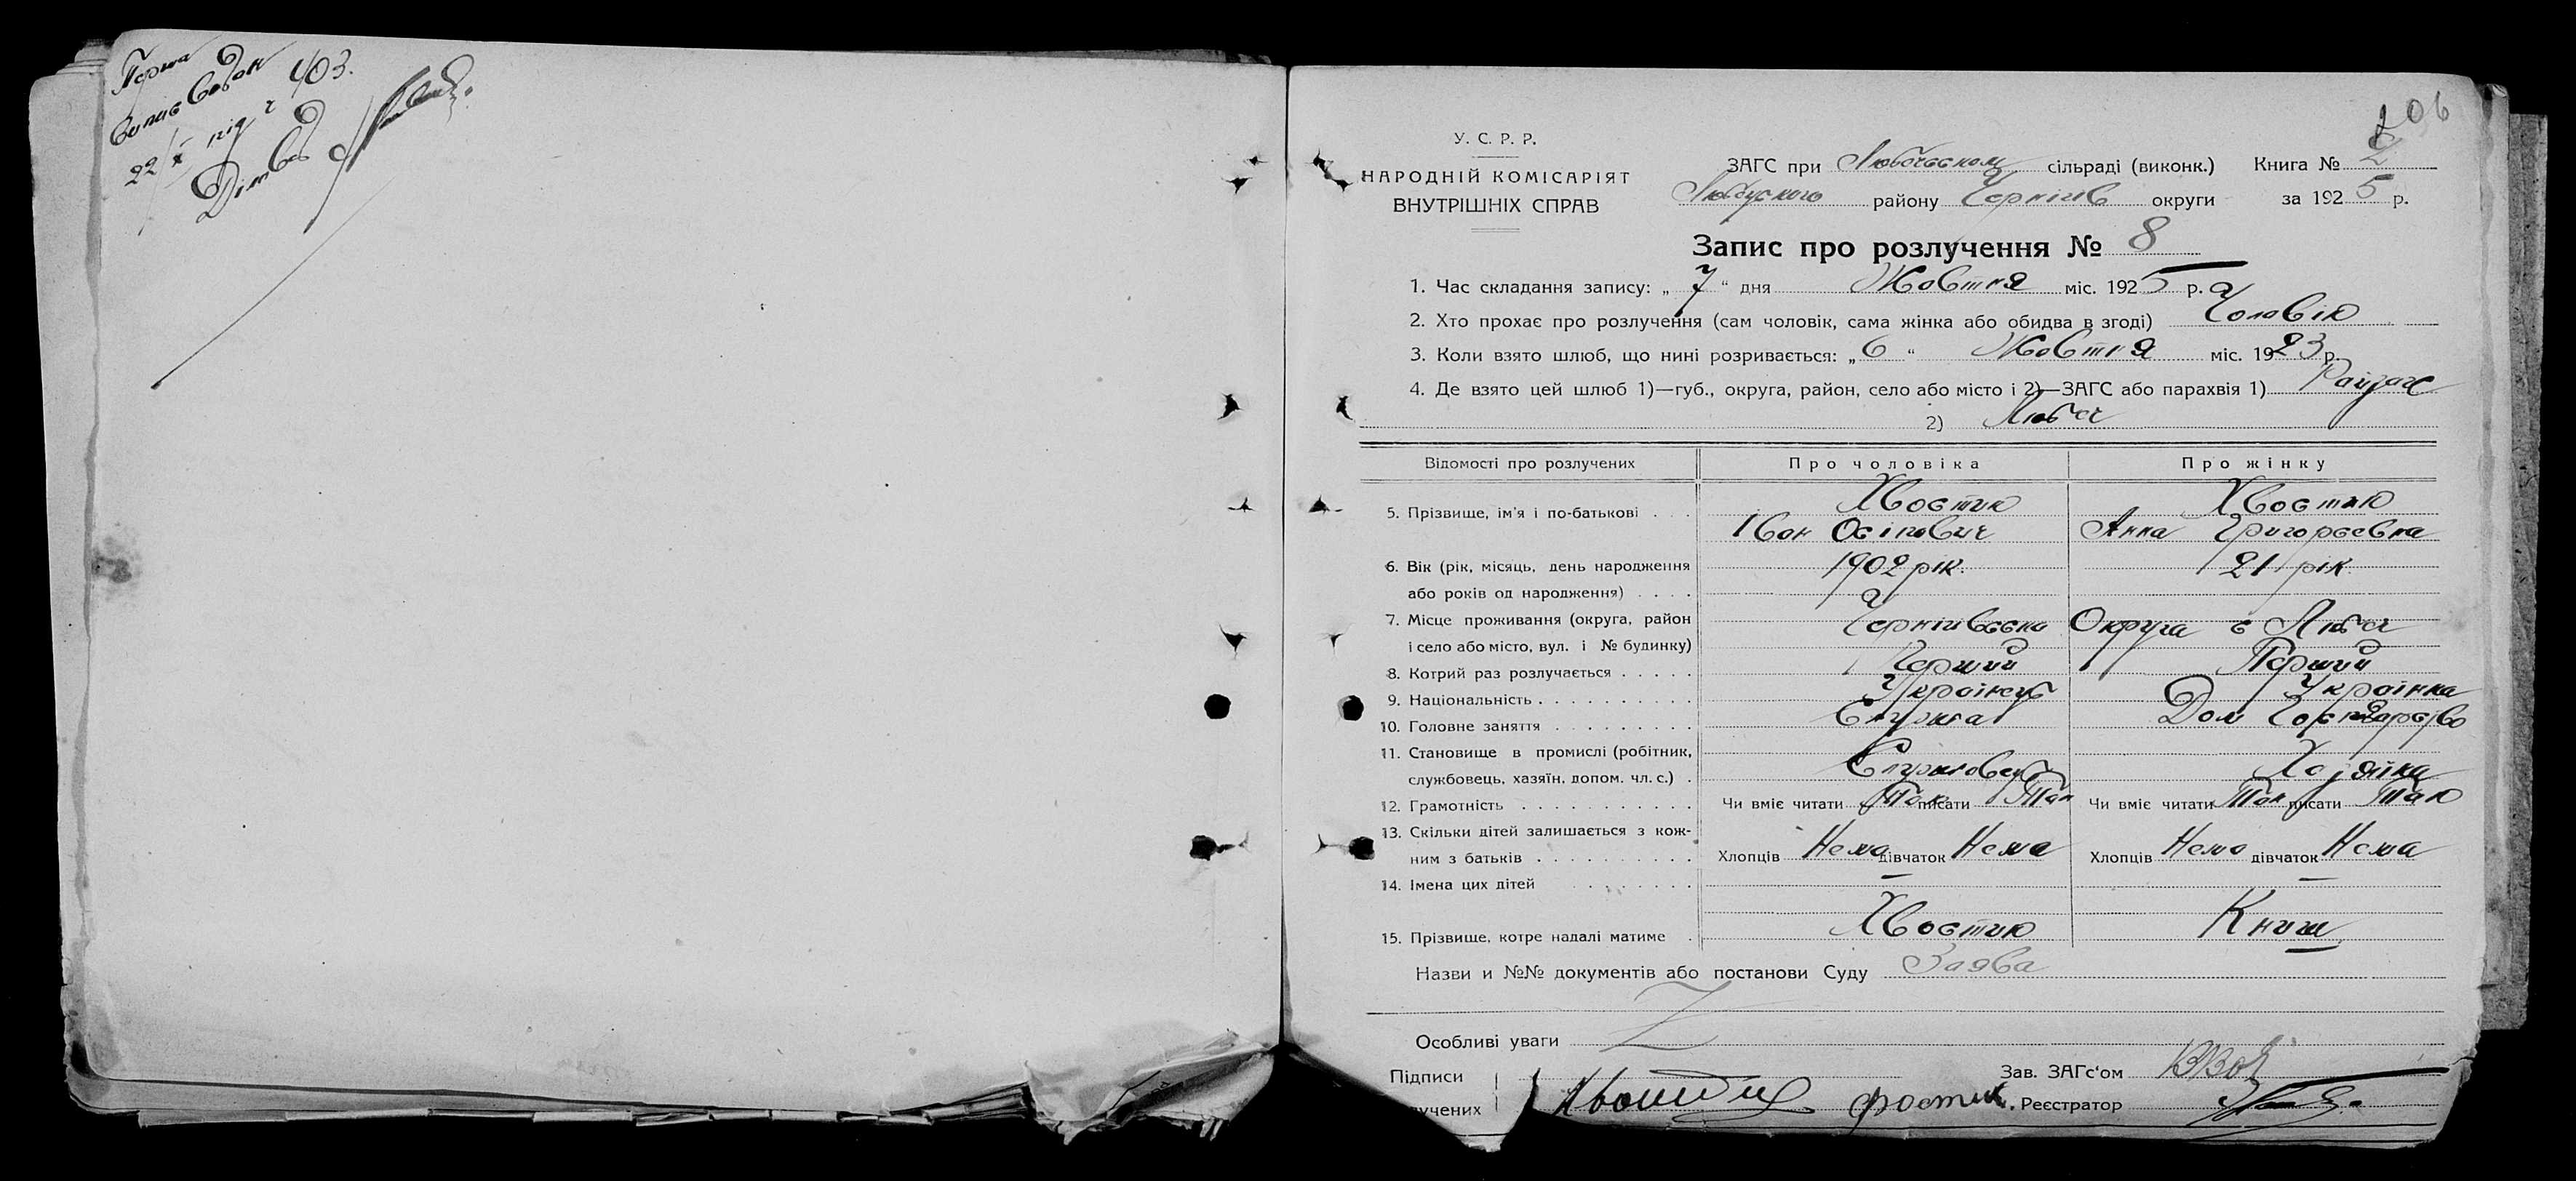 Перша
випис видан
22/X під ч 403.
106
У. С. Р. Р.
НАРОДНІЙ КОМІСАРІЯТ
ВНУТРІШНІХ СПРАВ
ЗАГС при Любеческом сільраді (виконк.) Книга № 2
Любецького району Чернігів округи за 1925 р.
Запис про розлучення № 8
1. Час складання запису: „ 7 “ дня Жовтня міс. 1925 р.
2. Хто прохає про розлучення (сам чоловік, сама жінка або обидва в згоді) Чоловік
3. Коли взято шлюб, що нині розривається: „ 6 “ Жовтня міс. 1923 р.
4. Де взято цей шлюб 1)—губ., округа, район, село або місто і 2)—ЗАГС або парахвія 1) Райзагс
2) Любеч
Відомості про розлучених Про чоловіка Про жінку
5. Прізвище, ім'я і по-батькові . . Хвостик Хвостик
Іван Осіпович Анна Григорєевна
6. Вік (рік, місяць, день народження 1902 рік. 21 рік
або років од народження) . . . .
7. Місце проживання (округа, район Чернігівська Округа с Любеч
і село або місто, вул. і № будинку)
8. Котрий раз розлучається . . . . . Перший Перший
9. Національність . . . . . . . . . . Українець Українка
10. Головне заняття . . . . . . . . . Служба Дом Господарство
11. Становище в промислі (робітник,
службовець, хазяїн, допом. чл. с.) . Службовець Хазяйка
12. Грамотність . . . . . . . . . . . Чи вміє читати Так писати Так Чи вміє читати Так писати Так
13. Скільки дітей залишається з кож-
ним з батьків . . . . . . . . . . Хлопців Нема дівчаток Нема Хлопців Нема дівчаток Нема
14. Імена цих дітей . . . . . . . — —
15. Прізвище, котре надалі матиме . Хвостик Книш
Назви и №№ документів або постанови Суду Заява
Особливі уваги
Підписи Зав. ЗАГс'ом
лучених Реєстратор